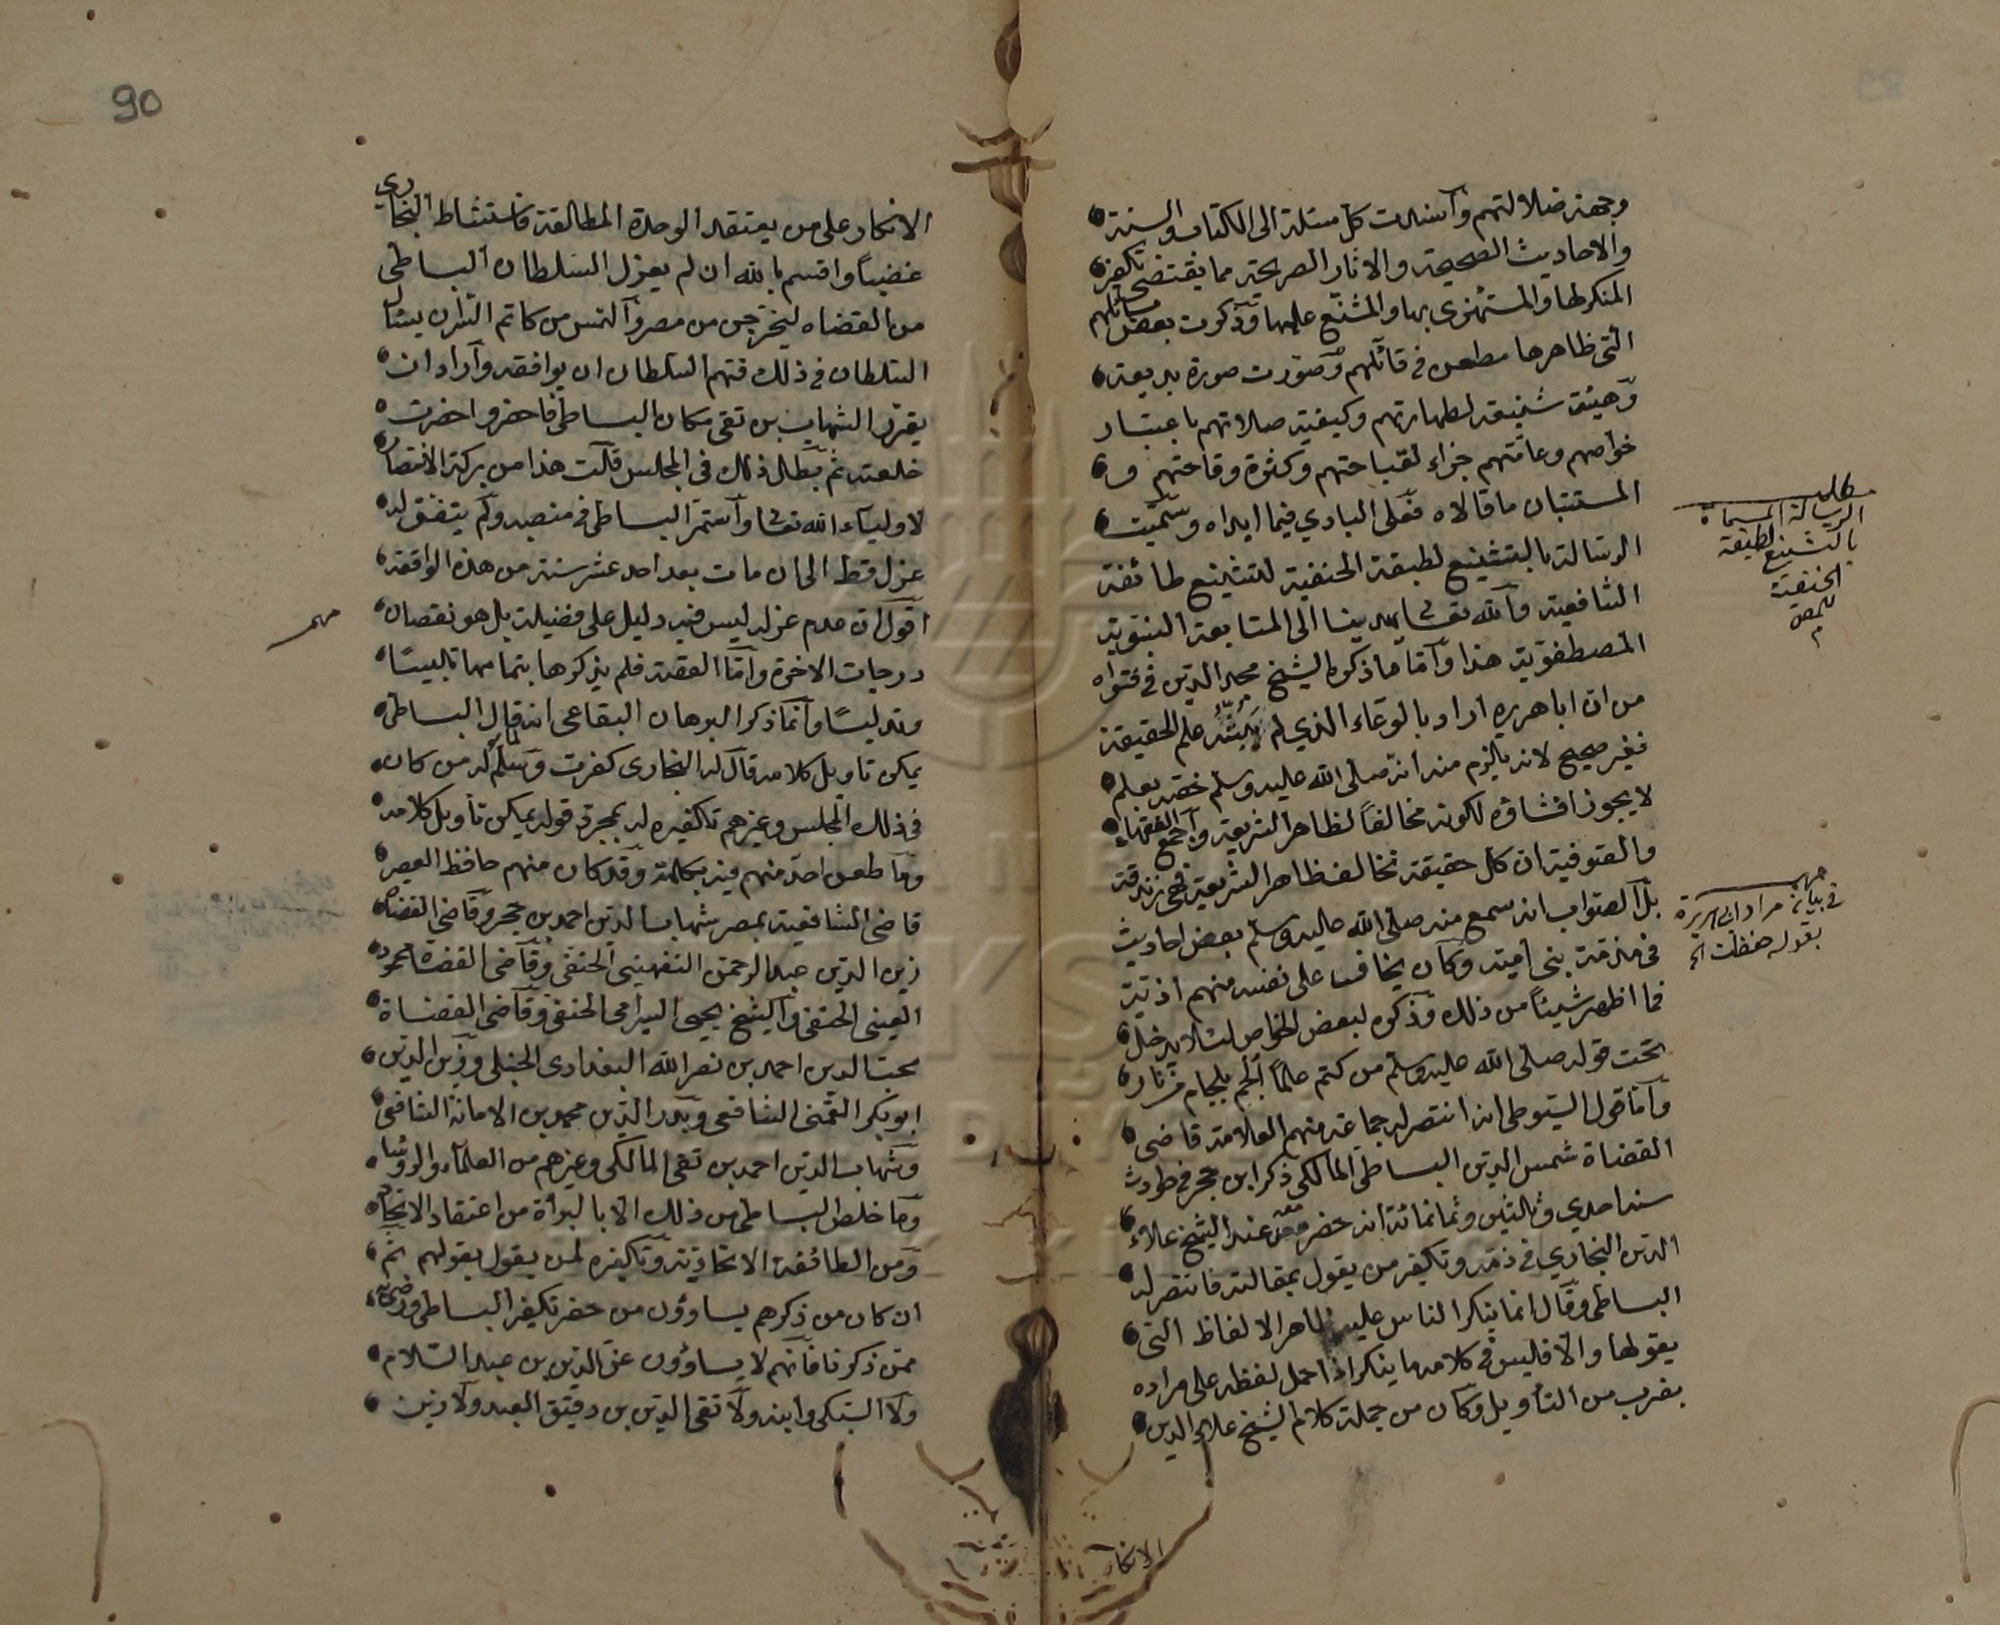 وجهة ضلالتهم وأسندت كل مسئلة الى الكتاب والسنة
والاحاديث الصحيحة والاثار الصريحة مما يقتضى تكفير
المنكر لها والمستهزى بها والمشنع عليها وذكرت بعض مسائلهم
التى ظاهرها مطعن فى قائلهم وصورت صورة بديعة
وهيئة شنيعة لطهارتهم وكيفية صلاتهم باعتبار
خواصهم وعامتهم جزاء لقباحتهم وكثرة وقاحتهم و
المستبان ما قالاه فعلى البادي فيما ابداه وسميت
الرسالة بالتشنيع لطبقة الحنفية لتشنيع طائفة
الشافعية والله تعالى يهدينا الى المتابعة النبوية
المصطفوية هذا وأما ما ذكره الشيخ محيى الدين فى فتواه
من ان اباهريره اراد بالوعاء الذي لم يبثه علم الحقيقة
فغير صحيح لانه يلزم منه انه صلى الله عليه وسلم خصه بعلم
لا يجوز افشاؤه لكونه مخالفا لظاهر الشريعة وأجمع الفقهاء
والصوفية ان كل حقيقة تخالف ظاهر الشريعة فهى زندقة
بل الصواب انه سمع منه صلى الله عليه وسلم بعض احاديث
فى مذمة بنى امية وكان يخاف على نفسه منهم اذية
فما اظهر شيئا من ذلك وذكره لبعض الخواص لئلا يدخل
تحت قوله صلى الله عليه وسلم من كتم علما ألجم بلجام من نار
وأما قول السيوطى انه انتصر له جماعة منهم العلامة قاضى
القضاة شمس الدين البساطى المالكى ذكر ابن حجر فى حوادث
سنة احدي وثلاثين وثمانمائة انه حضر معه عند الشيخ علاء
الدين البخاري فى ذمه وتكفير من يقول بمقالته فانتصر له
البساطى وقال انما ينكر الناس عليه ظاهر الالفاظ التى
يقولها والا فليس فى كلامه ما ينكر اذا حمل لفظه على مراده
بضرب من التأويل وكان من جملة كلام الشيخ علاء الدين
الانكار
مطلب
الرسالة المسماة
بالتشنيع لطبقة
الحنفية
للمص
م
مهم
فى بيان مراد ابى هريرة
بقوله حفظت الخ
90
الانكار على من يعتقد الوحدة المطالقة فاستشاط البخاري
غضبا واقسم بالله ان لم يعزل السلطان البساطى
من القضاه ليخرجن من مصر وألتمس من كاتم السر ان يسأل
السلطان فى ذلك فهم السلطان ان يوافقه وأراد ان
يقرر الشهاب بن تقى مكان البساطى فاحضر واحضرت
خلعته ثم بطل ذلك فى المجلس قلت هذا من بركة الانتصار
لاولياء الله تعالى وأستمر البساطى فى منصبه ولم يتفق له
عزل قط الى ان مات بعد احد عشر سنة من هذه الواقعة
اقول ان عدم عزله ليس فيه دليل على فضيلته بل هو نقصان
درجات الاخرة وأما القصة فلم يذكرها بتمامها تلبيسا
وتدليسا وانما ذكر البرهان البقاعى انه لما قال البساطى
يمكن تاويل كلامه قال له البخارى كفرت وسلم له من كان
فى ذلك المجلس وغيرهم تكفيره له بمجرد قوله يمكن تأويل كلامه
وما طعن احد منهم فيه بكلمة وقد كان منهم حافظ العصر
قاضى الشافعية بمصر شهاب الدين احمد بن حجر وقاضى القضاه
زين الدين عبد الرحمن التفهينى الحنفى وقاضى القضاة محمود
العينى الحنفى والشيخ يحيى السيرامى الحنفى وقاضى القضاة
محب الدين احمد بن نصر الله البغدادى الحنبلى وزين الدين
ابو بكر القمنى الشافعى وبدر الدين محمد بن الامانة الشافعى
وشهاب الدين احمد بن تقى المالكى وغيرهم من العلماء والرؤساء
وما خلص البساطى من ذلك الا بالبرأة من اعتقاد الاتحاد
ومن الطائفة الاتحادية وتكفيره لمن يقول بقولهم ثم
ان كان من ذكرهم يساوون من حضر تكفير البساطى
ممن ذكرنا فانهم لا يساوون عز الدين بن عبد السلام
ولا السبكى وابنه ولا تقى الدين بن دقيق العيد ولا زين
مهم